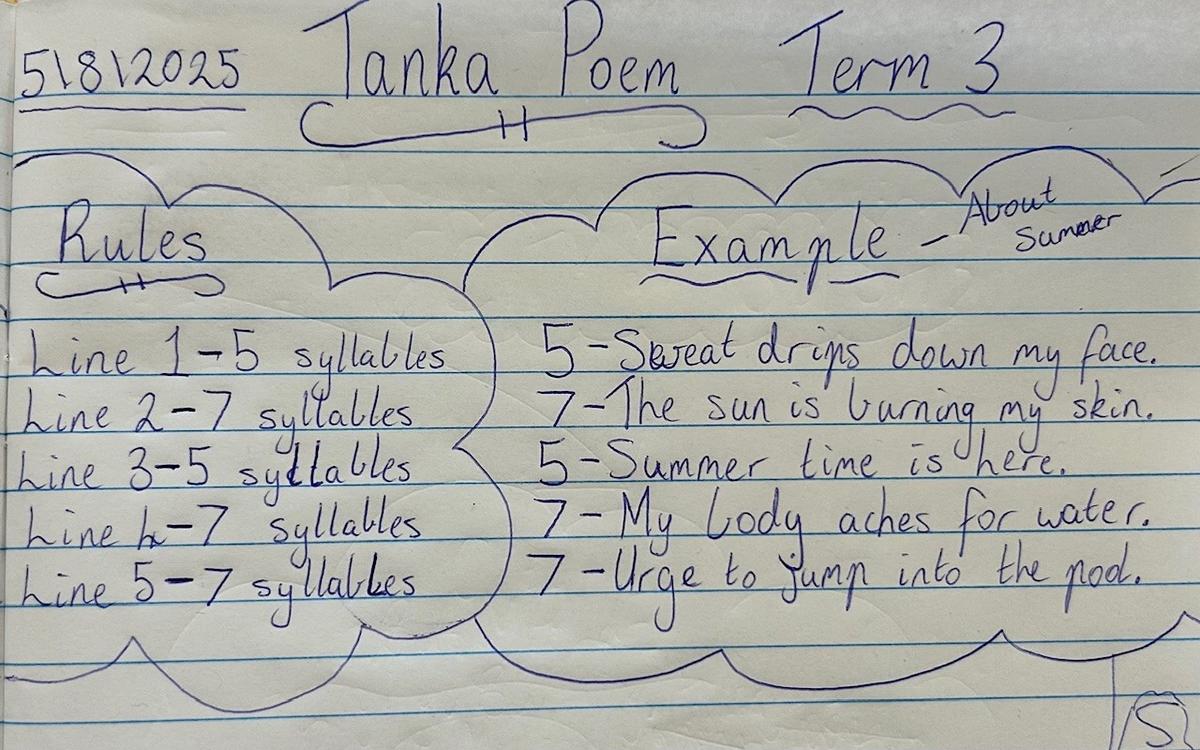 5\8\2025 Tanka Poem Term 3
Rules
Line 1-5 syllables
Line 2-7 syllables
Line 3-5 syllables
Line 4-7 syllables
Line 5-7 syllables
Example - About Summer
5-Sweat drips down my face.
7-The sun is burning my skin.
5-Summer time is here.
7-My body aches for water.
7-Urge to jump into the pool.
S